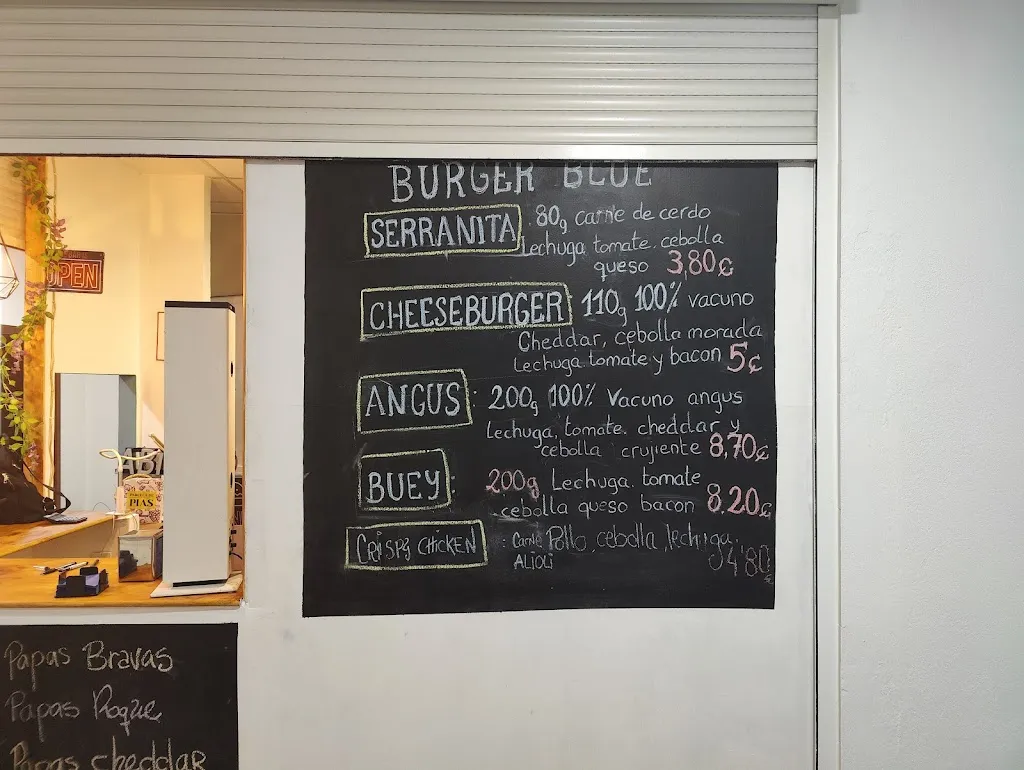 BURGER BLUE
SERRANITA 80g carne de cerdo
Lechuga tomate. cebolla
queso 3,80€
CHEESEBURGER 110g 100% vacuno
Cheddar, cebolla morada
Lechuga tomate y bacon 5€
ANGUS : 200g 100% Vacuno angus
Lechuga, tomate. cheddar y
cebolla crujiente 8,70€
BUEY : 200g Lechuga. tomate
cebolla queso bacon 8.20€
CRISPY CHICKEN : Carne Pollo, cebolla, lechuga.
ALIOLI 04'80€
OPEN
PIAS
Papas Bravas
Papas Roque
Papas cheddar